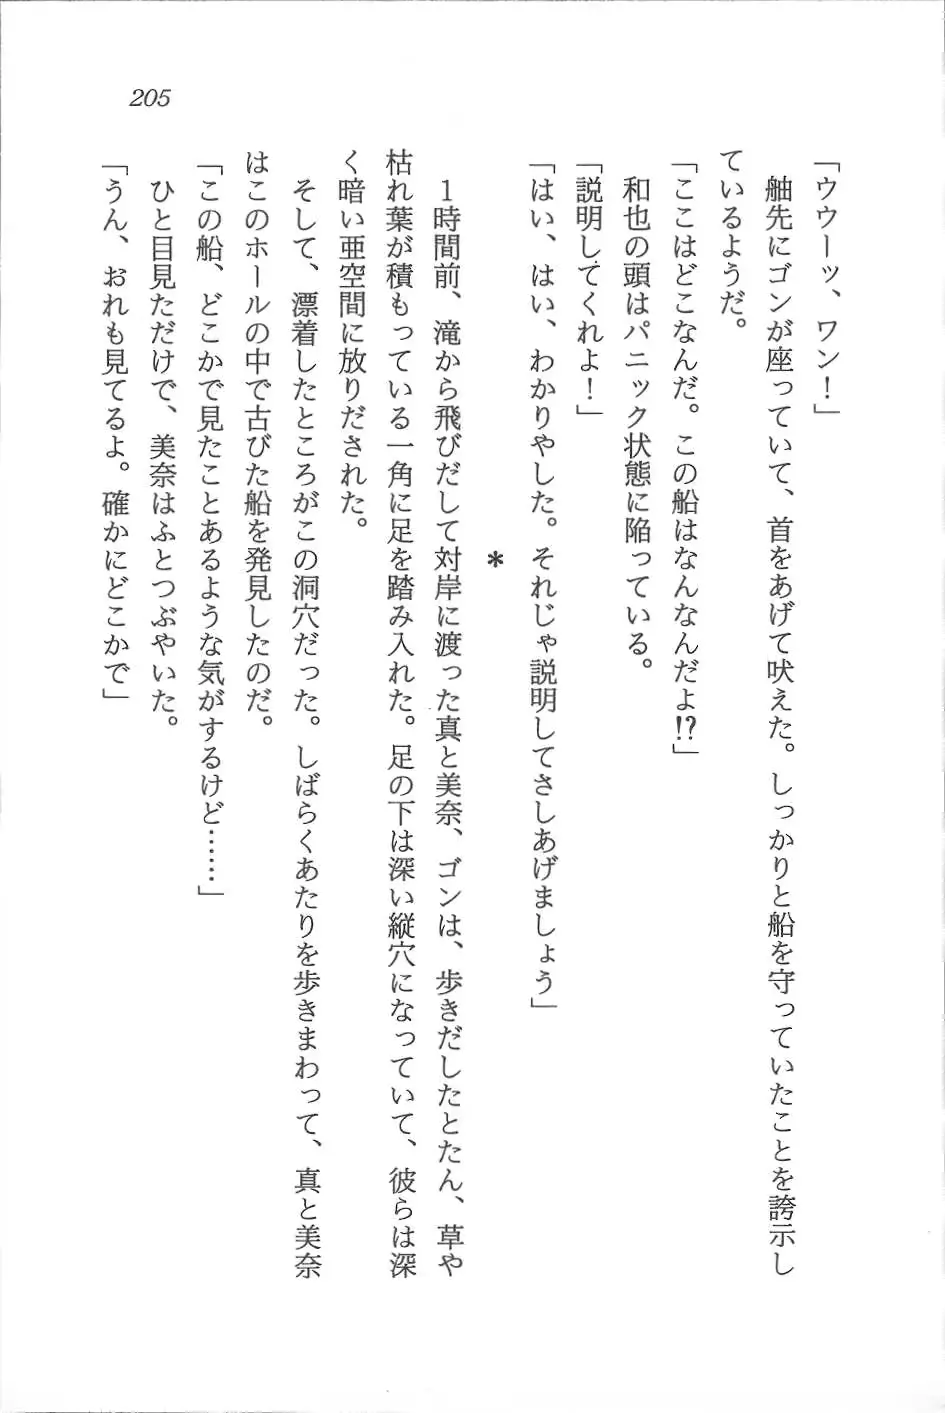 205
「ウウーッ、ワン！」
舳先にゴンが座っていて、首をあげて吠えた。しっかりと船を守っていたことを誇示し
ているようだ。
「ここはどこなんだ。この船はなんなんだよ!?」
和也の頭はパニック状態に陥っている。
「説明してくれよ！」
「はい、はい、わかりやした。それじゃ説明してさしあげましょう」
＊
１時間前、滝から飛びだして対岸に渡った真と美奈、ゴンは、歩きだしたとたん、草や
枯れ葉が積もっている一角に足を踏み入れた。足の下は深い縦穴になっていて、彼らは深
く暗い亜空間に放りだされた。
そして、漂着したところがこの洞穴だった。しばらくあたりを歩きまわって、真と美奈
はこのホールの中で古びた船を発見したのだ。
「この船、どこかで見たことあるような気がするけど……」
ひと目見ただけで、美奈はふとつぶやいた。
「うん、おれも見てるよ。確かにどこかで」